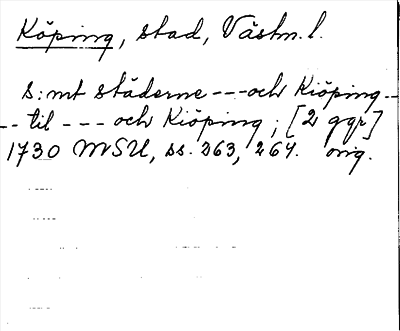 Köping, stad, Västm. l.
s:mt städerne --- och Kiöping --
-- til --- och Kiöping; [2 ggr]
1730 MSU, ss. 263, 264. orig.